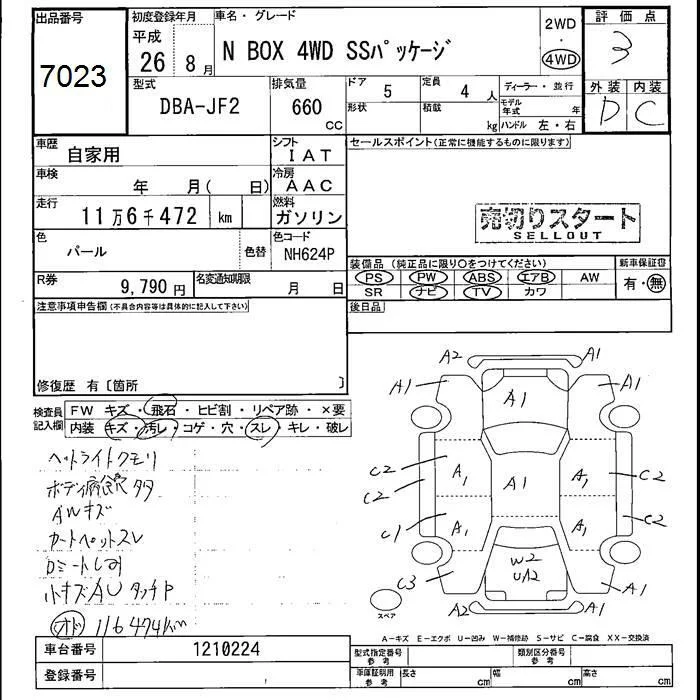 出品番号
7023
初度登録年月
平成
26
8月
車名・グレード
N BOX 4WD SSパッケージ
2WD
・
4WD
評価点
3
外装
内装
D
C
型式
DBA-JF2
排気量
660
CC
ドア
5
定員
4人
形状
積載
kg
ディーラー・並行
モデル年式
年
ハンドル 左・右
車歴
自家用
シフト
IAT
車検
年 月( 日)
冷房
AAC
走行
11万6千472 km
燃料
ガソリン
色
パール
色替
色コード
NH624P
R券
9,790円
名変通知期限
月 日
セールスポイント(正常に機能するものに限ります)
売切りスタート
SELLOUT
装備品(純正品に限り○をつけてください)
新車保証書
PS PW ABS エアB AW
SR ナビ TV カワ
有・無
後日品
注意事項申告欄(不具合内容等は具体的に記入して下さい)
修復歴 有〔箇所 〕
検査員記入欄
FW キズ・飛石・ヒビ割・リペア跡・×要
内装 キズ・汚レ・コゲ・穴・スレ・キレ・破レ
ヘットライトクモリ
AWキズ
カートペットスレ
小キズAU タッチP
オド 116474km
A2
A1
A1
A1
A1
C2
C2
A1
A1
A1
C2
C1
A1
A1
C2
C3
W2
UA2
A1
A2
A1
スペア
A-キズ E-エクボ U-凹み W-補修跡 S-サビ C-腐食 XX-交換済
車台番号
1210224
登録番号
型式指定番号
参考
類別区分番号
参考
車庫証明用
参考
長さ
cm
幅
cm
高さ
cm